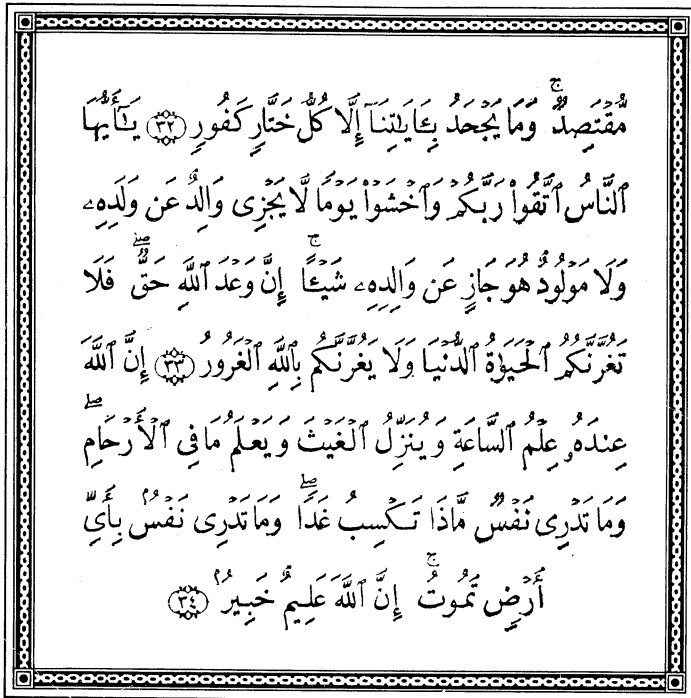 مُّقْتَصِدٌۚ وَمَا يَجْحَدُ بِـَٔايَـٰتِنَآ إِلَّا كُلُّ خَتَّارٍ كَفُورٍ ﴿٣٢﴾ يَـٰٓأَيُّهَا
ٱلنَّاسُ ٱتَّقُوا۟ رَبَّكُمْ وَٱخْشَوْا۟ يَوْمًا لَّا يَجْزِى وَالِدٌ عَن وَلَدِهِۦ
وَلَا مَوْلُودٌ هُوَ جَازٍ عَن وَالِدِهِۦ شَيْـًٔاۚ إِنَّ وَعْدَ ٱللَّهِ حَقٌّۖ فَلَا
تَغُرَّنَّكُمُ ٱلْحَيَوٰةُ ٱلدُّنْيَا وَلَا يَغُرَّنَّكُم بِٱللَّهِ ٱلْغَرُورُ ﴿٣٣﴾ إِنَّ ٱللَّهَ
عِندَهُۥ عِلْمُ ٱلسَّاعَةِ وَيُنَزِّلُ ٱلْغَيْثَ وَيَعْلَمُ مَا فِى ٱلْأَرْحَامِۖ
وَمَا تَدْرِى نَفْسٌ مَّاذَا تَكْسِبُ غَدًاۖ وَمَا تَدْرِى نَفْسٌۢ بِأَىِّ
أَرْضٍ تَمُوتُۚ إِنَّ ٱللَّهَ عَلِيمٌ خَبِيرٌۢ ﴿٣٤﴾